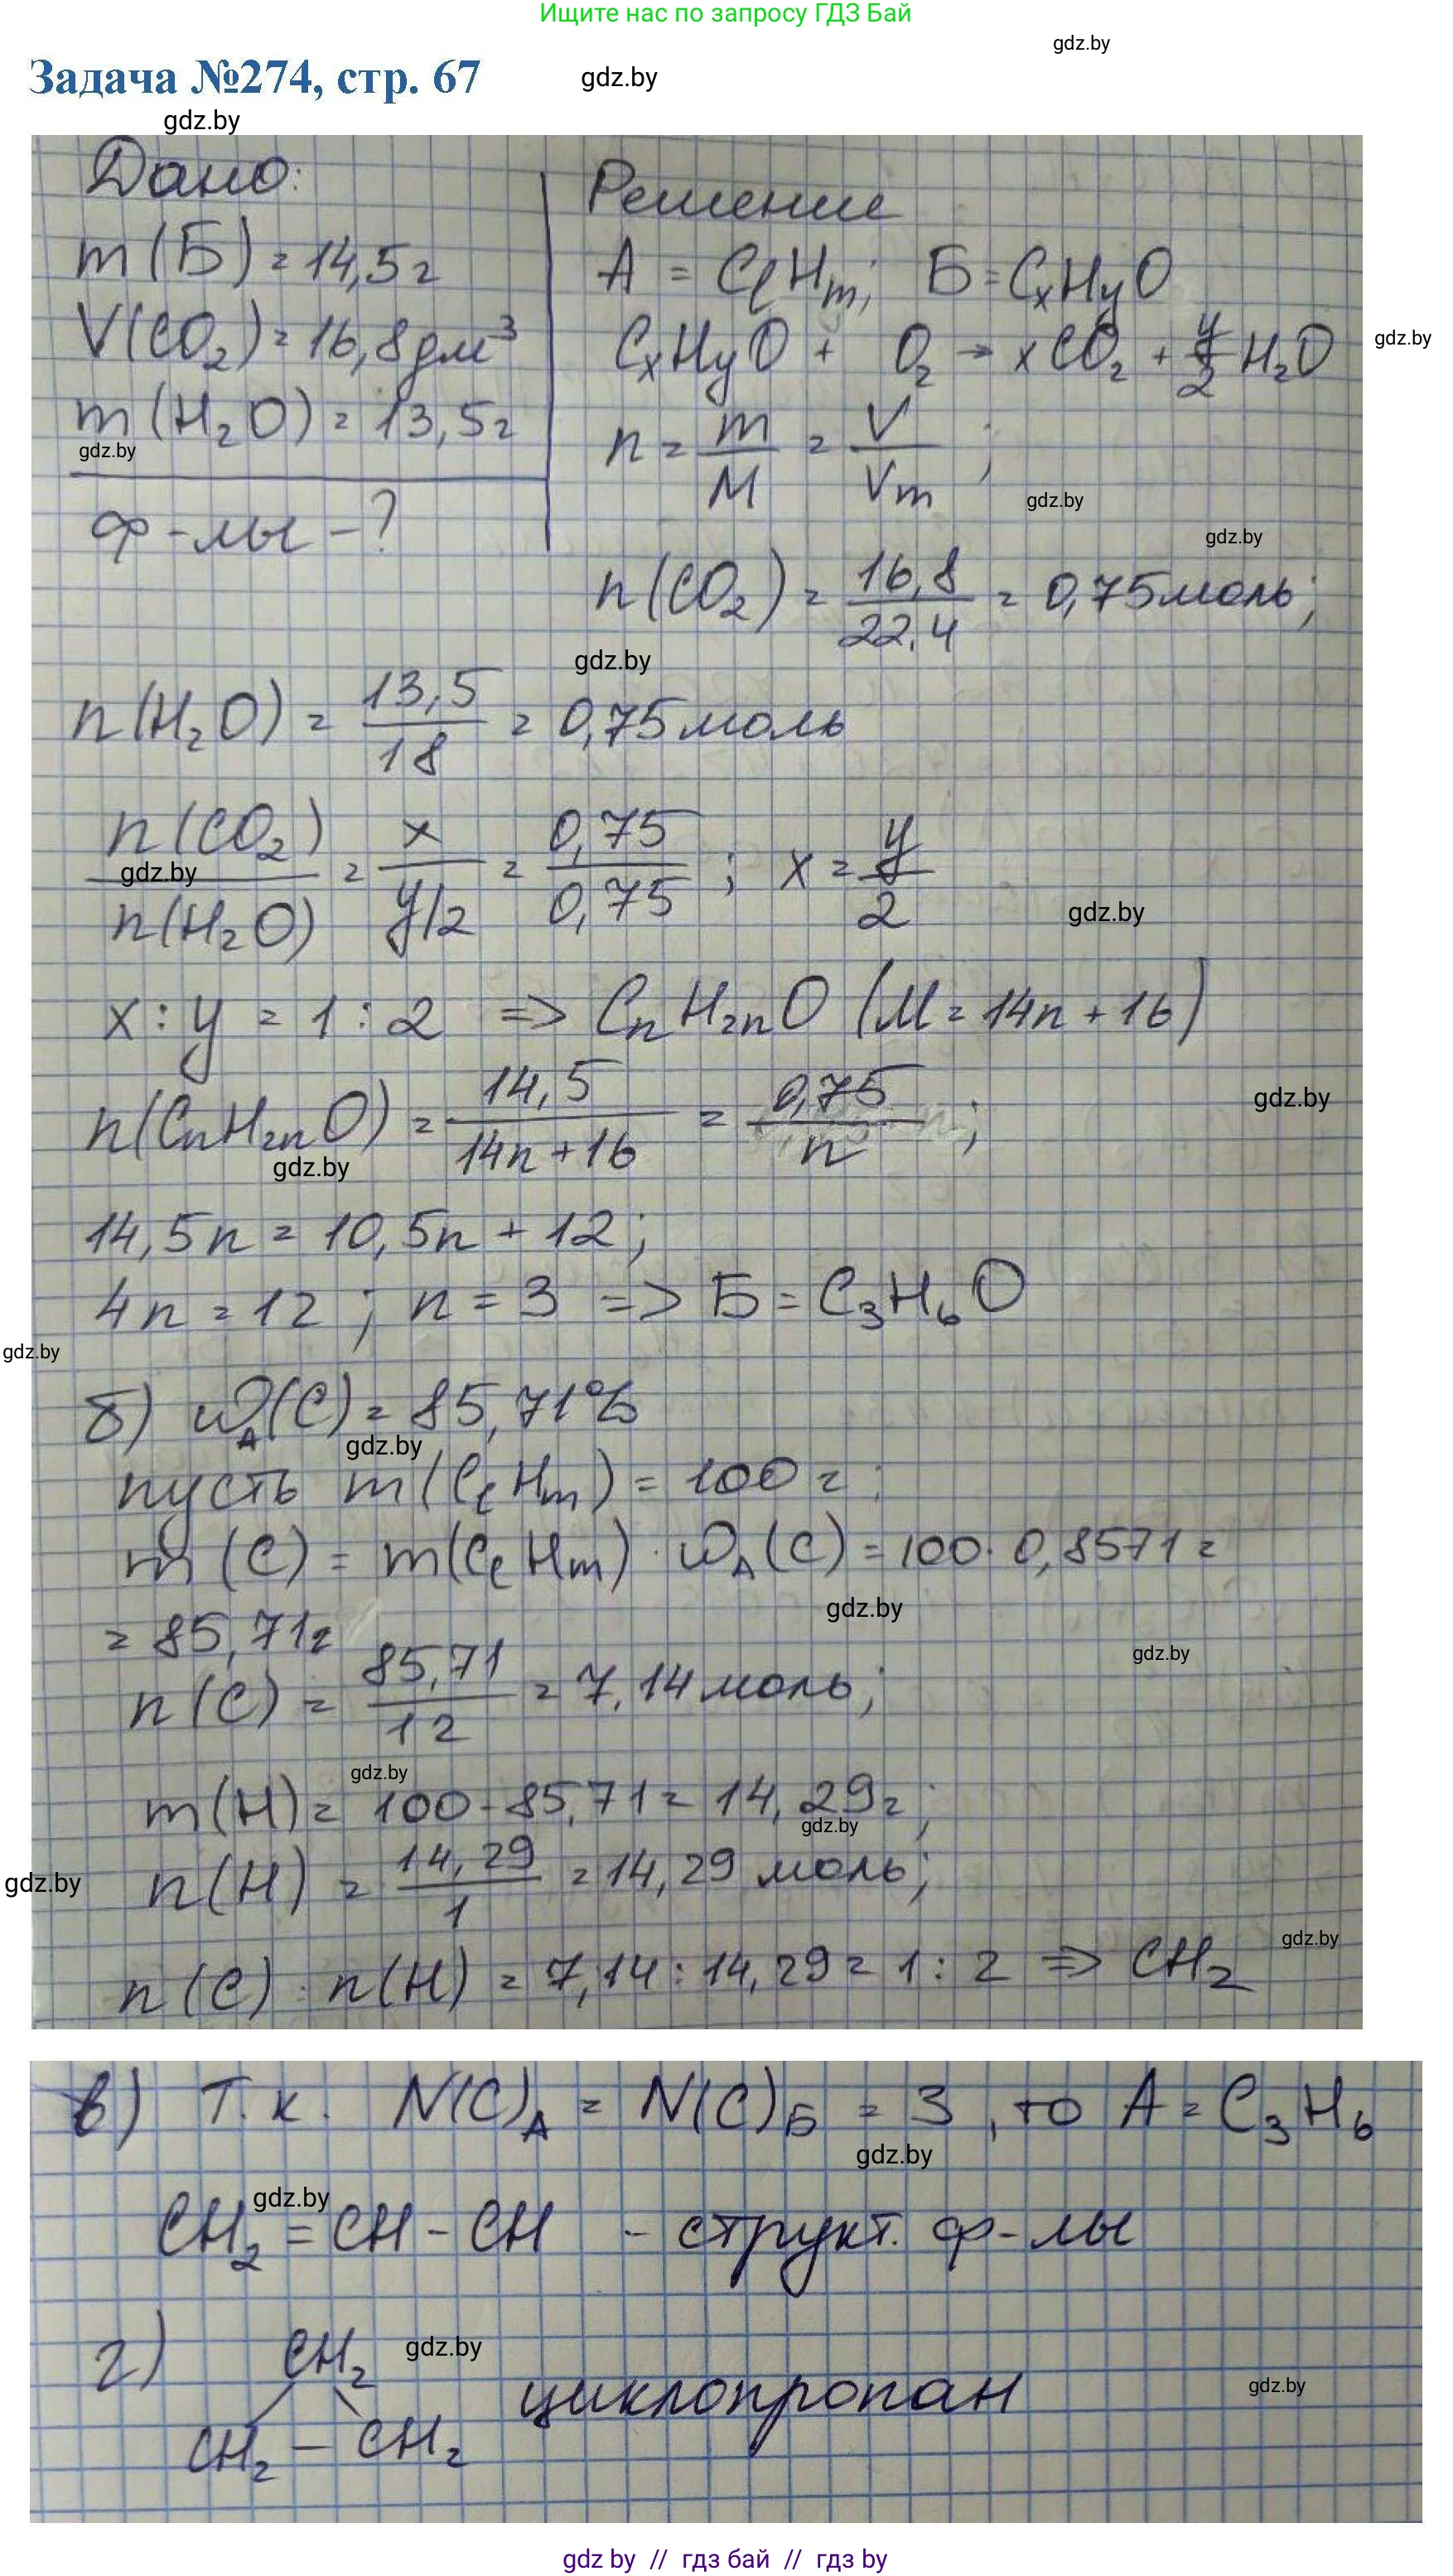 Ищите нас по запросу ГДЗ Бай
gdz.by
Задача №274, стр. 67
gdz.by
gdz.by
Дано:
Решение
m(Б) = 14,5г
A = CℓHm; Б = CxHyO
V(CO₂) = 16,8дм³
CxHyO + O₂ → xCO₂ + y/2 H₂O
gdz.by
m(H₂O) = 13,5г
n = m/M = V/Vm;
gdz.by
gdz.by
ф-лы - ?
gdz.by
n(CO₂) = 16,8/22,4 = 0,75моль;
gdz.by
n(H₂O) = 13,5/18 = 0,75моль
n(CO₂)/n(H₂O) = x/y/2 = 0,75/0,75; x = y/2
gdz.by
gdz.by
x : y = 1 : 2 => CnH2nO (M = 14n + 16)
n(CnH2nO) = 14,5/14n+16 = 0,75/n;
gdz.by
gdz.by
14,5n = 10,5n + 12;
4n = 12; n = 3 => Б = C₃H₆O
gdz.by
б) ωA(C) = 85,71%
gdz.by
пусть m(CℓHm) = 100г;
m(C) = m(CℓHm) · ωA(C) = 100 · 0,8571 =
gdz.by
= 85,71г
gdz.by
n(C) = 85,71/12 = 7,14моль;
gdz.by
m(H) = 100 - 85,71 = 14,29г;
gdz.by
n(H) = 14,29/1 = 14,29 моль;
gdz.by
gdz.by
n(C) : n(H) = 7,14 : 14,29 = 1 : 2 => CH₂
в) Т.к. N(C)A = N(C)Б = 3, то A = C₃H₆
gdz.by
gdz.by
CH₂ = CH - CH - структ. ф-лы
г) CH₂
gdz.by
циклопропан
gdz.by
CH₂ - CH₂
gdz by // гдз бай // гдз by